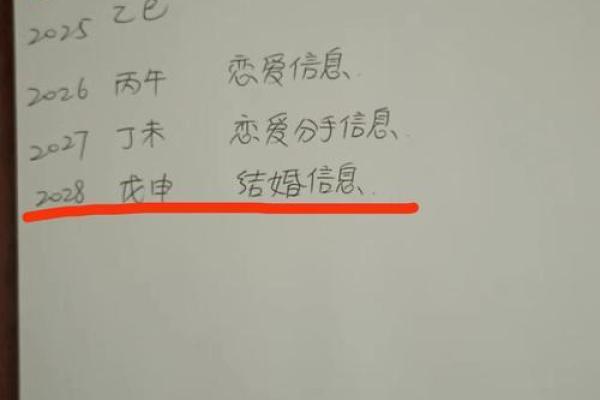 2025 乙巳
2026 丙午 恋爱信息.
2027 丁未 恋爱分手信息.
2028 戊申 结婚信息.